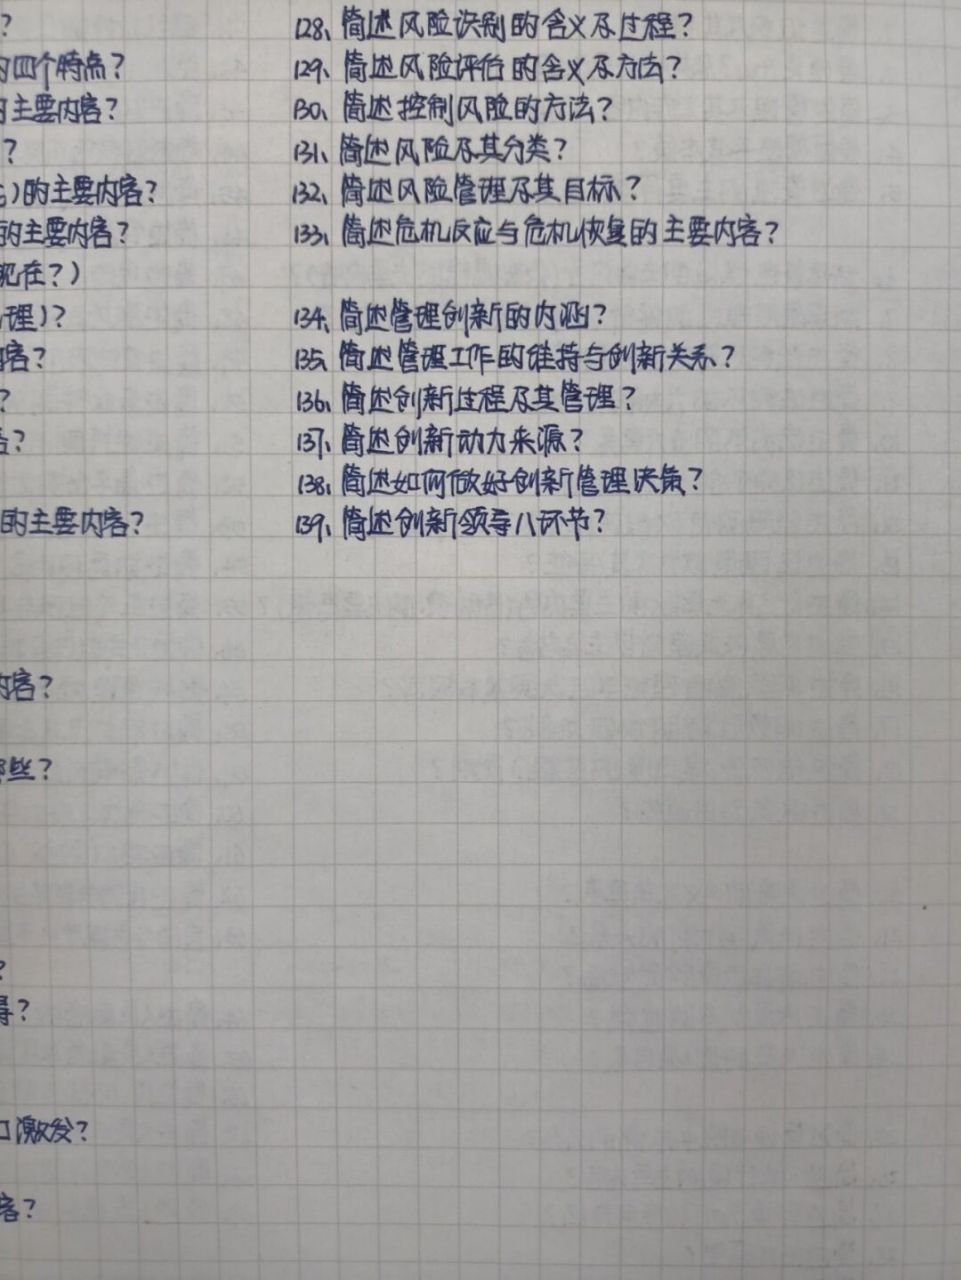 ?
的四个特点?
的主要内容?
?
)的主要内容?
的主要内容?
现在?)
理)?
内容?
?
?
的主要内容?
内容?
些?
?
?
激发?
容?
128、简述风险识别的含义及过程?
129、简述风险评估的含义及方法?
130、简述控制风险的方法?
131、简述风险及其分类?
132、简述风险管理及其目标?
133、简述危机反应与危机恢复的主要内容?
134、简述管理创新的内涵?
135、简述管理工作的维持与创新关系?
136、简述创新过程及其管理?
137、简述创新动力来源?
138、简述如何做好创新管理决策?
139、简述创新领导八环节?